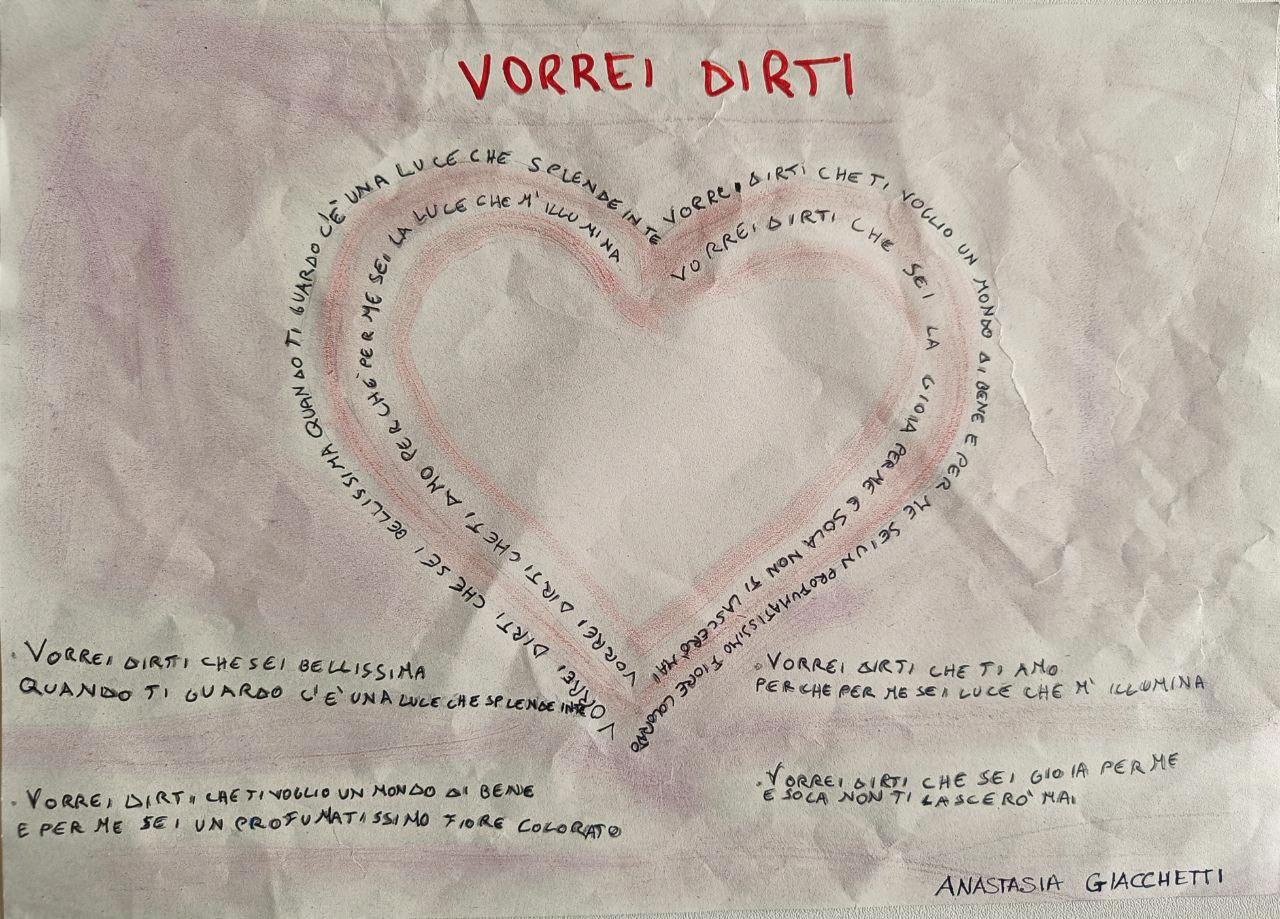 VORREI DIRTI
VORREI DIRTI CHE SEI BELLISSIMA QUANDO TI GUARDO C'È UNA LUCE CHE SPLENDE IN TE
VORREI DIRTI CHE TI VOGLIO UN MONDO DI BENE E PER ME SEI UN PROFUMATISSIMO FIORE COLORATO
VORREI DIRTI CHE TI AMO PERCHÈ PER ME SEI LA LUCE CHE M'ILLUMINA
VORREI DIRTI CHE SEI LA GIOIA PER ME E SOLA NON TI LASCERÒ MAI
• VORREI DIRTI CHE SEI BELLISSIMA
QUANDO TI GUARDO C'È UNA LUCE CHE SPLENDE IN TE
• VORREI DIRTI CHE TI VOGLIO UN MONDO DI BENE
E PER ME SEI UN PROFUMATISSIMO FIORE COLORATO
• VORREI DIRTI CHE TI AMO
PERCHE PER ME SEI LUCE CHE M'ILLUMINA
• VORREI DIRTI CHE SEI GIOIA PER ME
E SOLA NON TI LASCERO' MAI
ANASTASIA GIACCHETTI